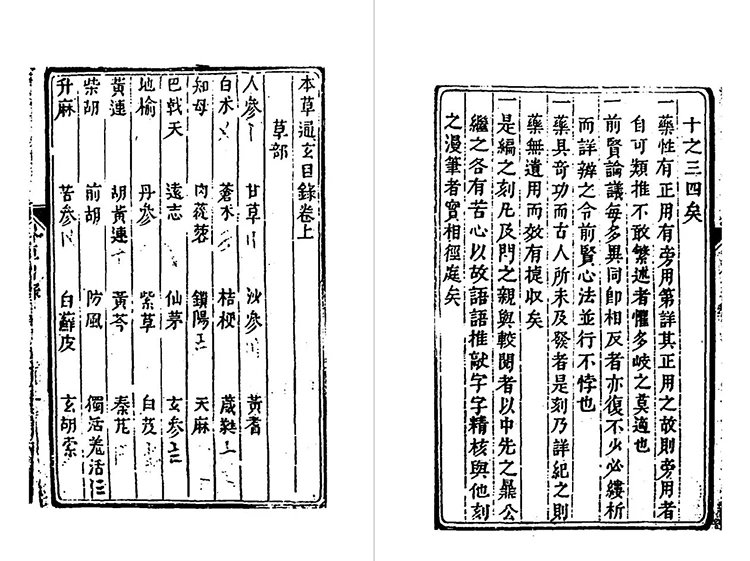 十之三四矣
一藥性有正用有旁用第詳其正用之故則旁用者
自可類推不敢繁述者懼多岐之莫適也
一前賢論議每多異同卽相反者亦復不少必縷析
而詳辨之令前賢心法並行不悖也
一藥具奇功而古人所未及發者是刻乃詳紀之則
藥無遺用而效有捷收矣
一是編之刻凡及門之親與較閱者以中先之鼎公
繼之各有苦心以故語語推敲字字精核與他刻
之漫筆者實相徑庭矣
本草通玄目錄卷上
草部
人參 甘草 沙參 黃耆
白朮 蒼朮 桔梗 葳蕤
知母 肉蓯蓉 鎖陽 天麻
巴戟天 遠志 仙茅 玄參
地榆 丹參 紫草 白芨
黃連 胡黃連 黃芩 秦艽
柴胡 前胡 防風 獨活羌活
升麻 苦參 白蘚皮 玄胡索